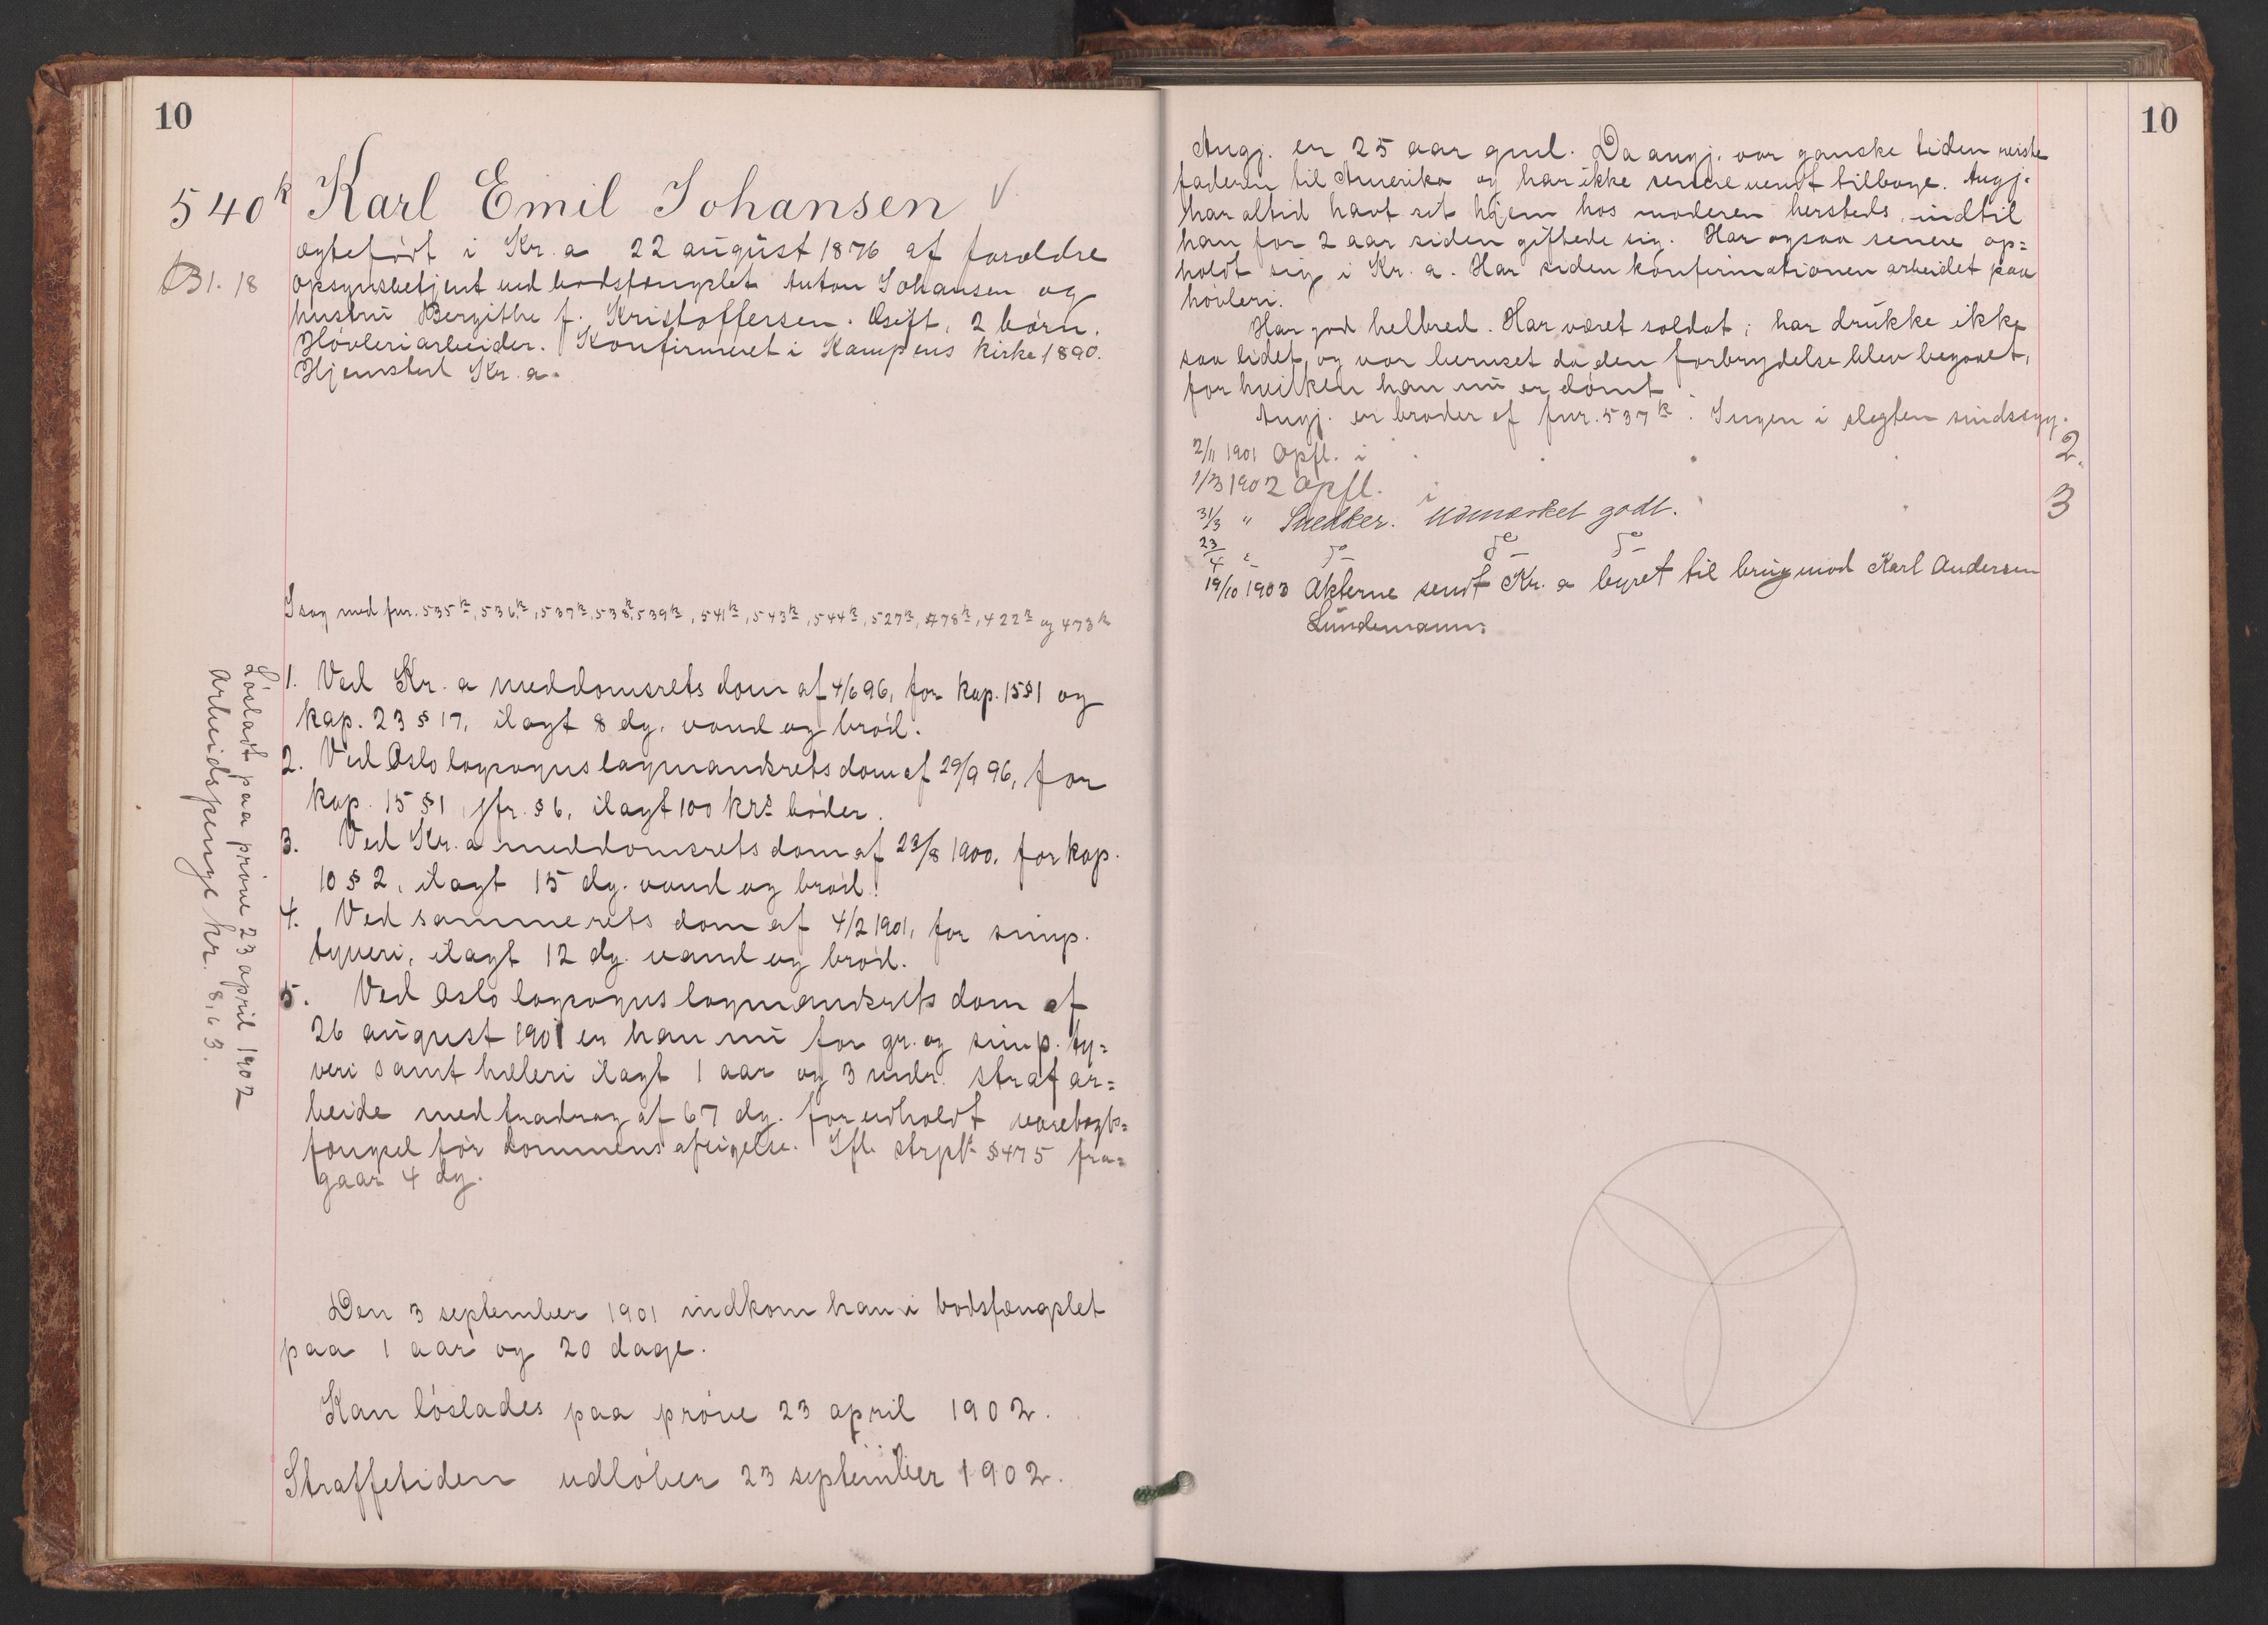 10
540k Karl Emil Johansen
ægtefødt i Kr.a 22 august 1876 af forældre
B1. 18
opsynsbetjent ved bodsfængslet Anton Johansen og
hustru Bergithe f. Kristoffersen. Gift, 2 børn.
Høvleriarbeider. Konfirmeret i Kampens kirke 1890.
Hjemsted Kr.a.
I sag med fnr. 535k, 536k, 537k, 538k, 539k, 541k, 543k, 544k, 527k, 478k, 422k og 473k
1. Ved Kr.a meddomsrets dom af 4/6 96, for kap. 15 § 1 og
kap. 23 § 17, ilagt 8 dg. vand og brød.
2. Ved Oslo lagsogns lagmandsrets dom af 29/9 96, for
kap. 15 § 1, jfr. § 6, ilagt 100 krs bøder.
3. Ved Kr.a meddomsrets dom af 23/8 1900, for kap.
10 § 2, ilagt 15 dg. vand og brød.
4. Ved samme rets dom af 4/2 1901, for simp.
tyveri, ilagt 12 dg. vand og brød.
5. Ved Oslo lagsogns lagmandsrets dom af
26 august 1901 er han nu for gr. og simp. ty=
veri samt hæleri ilagt 1 aar og 3 mdr. strafar=
beide med fradrag af 67 dg. for udholdt varetægts=
fængsel før dommens afsigelse. Ifl. strpl. § 475 fra=
gaar 4 dg.
Løsladt paa prøve 23 april 1902
Arbeidspenge kr. 8,63.
Den 3 september 1901 indkom han i bodsfængslet
paa 1 aar og 20 dage.
Kan løslades paa prøve 23 april 1902.
Straffetiden udløber 23 september 1902.
10
Angj. er 25 aar gml. Da angj. var ganske liden reiste
faderen til Amerika og har ikke senere vendt tilbage. Angj.
har altid havt sit hjem hos moderen hersteds, indtil
han for 2 aar siden giftede sig. Har ogsaa senere op=
holdt sig i Kr.a. Har siden konfirmationen arbeidet paa
høvleri.
Har god helbred. Har været soldat; har drukke ikke
saa lidet, og var beruset da den forbrydelse blev begaaet,
for hvilken han nu er dømt.
Angj. er broder af fnr. 537k. Ingen i slegten sindssyg.
2/11 1901 Opfl. i 2.
1/3 1902 opfl. i 3
31/3 " Snedker. Udmærket godt.
23/4 " do do do
19/10 1903 Akterne sendt Kr.a byret til brug mod Karl Andersen
Lundemann.